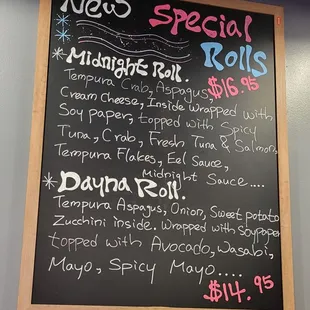 New
Special
Rolls
*Midnight Roll.
$16.95
Tempura Crab, Aspagus,
Cream Cheese, Inside Wrapped with
Soy paper, topped with Spicy
Tuna, Crab, Fresh Tuna & Salmon,
Tempura Flakes, Eel Sauce,
Midnight Sauce....
*Dayna Roll.
Tempura Aspagus, Onion, Sweet potato
Zucchini inside. Wrapped with Soypaper
topped with Avocado, Wasabi,
Mayo, Spicy Mayo....
$14.95